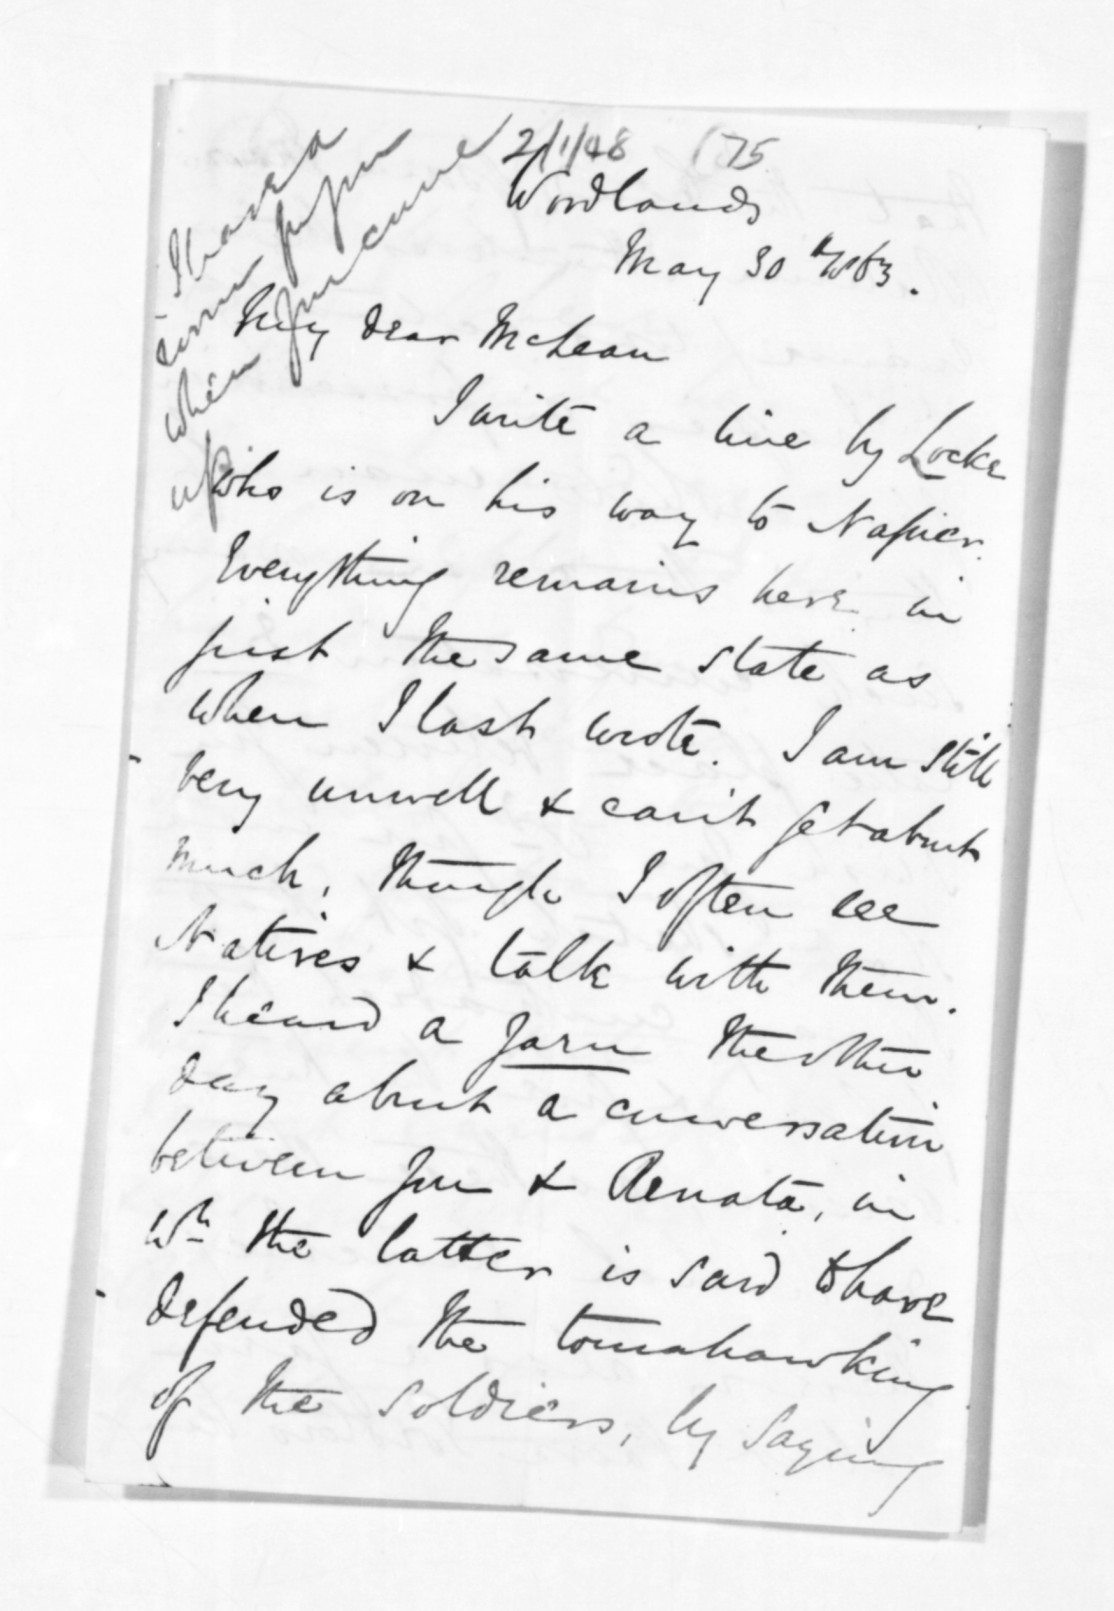 2/1/48 175
Woodlands
May 30th 1863.
My dear McLean
I write a line by Locke
who is on his way to Napier.
Everything remains here in
just the same state as
when I last wrote. I am still
very unwell & can't get about
much, though I often see
Natives & talk with them.
I heard a yarn the other
day about a conversation
between you & Renata, in
wh the latter is said to have
defended the tomahawking
of the soldiers, by saying
I have a
for you
when you come
up